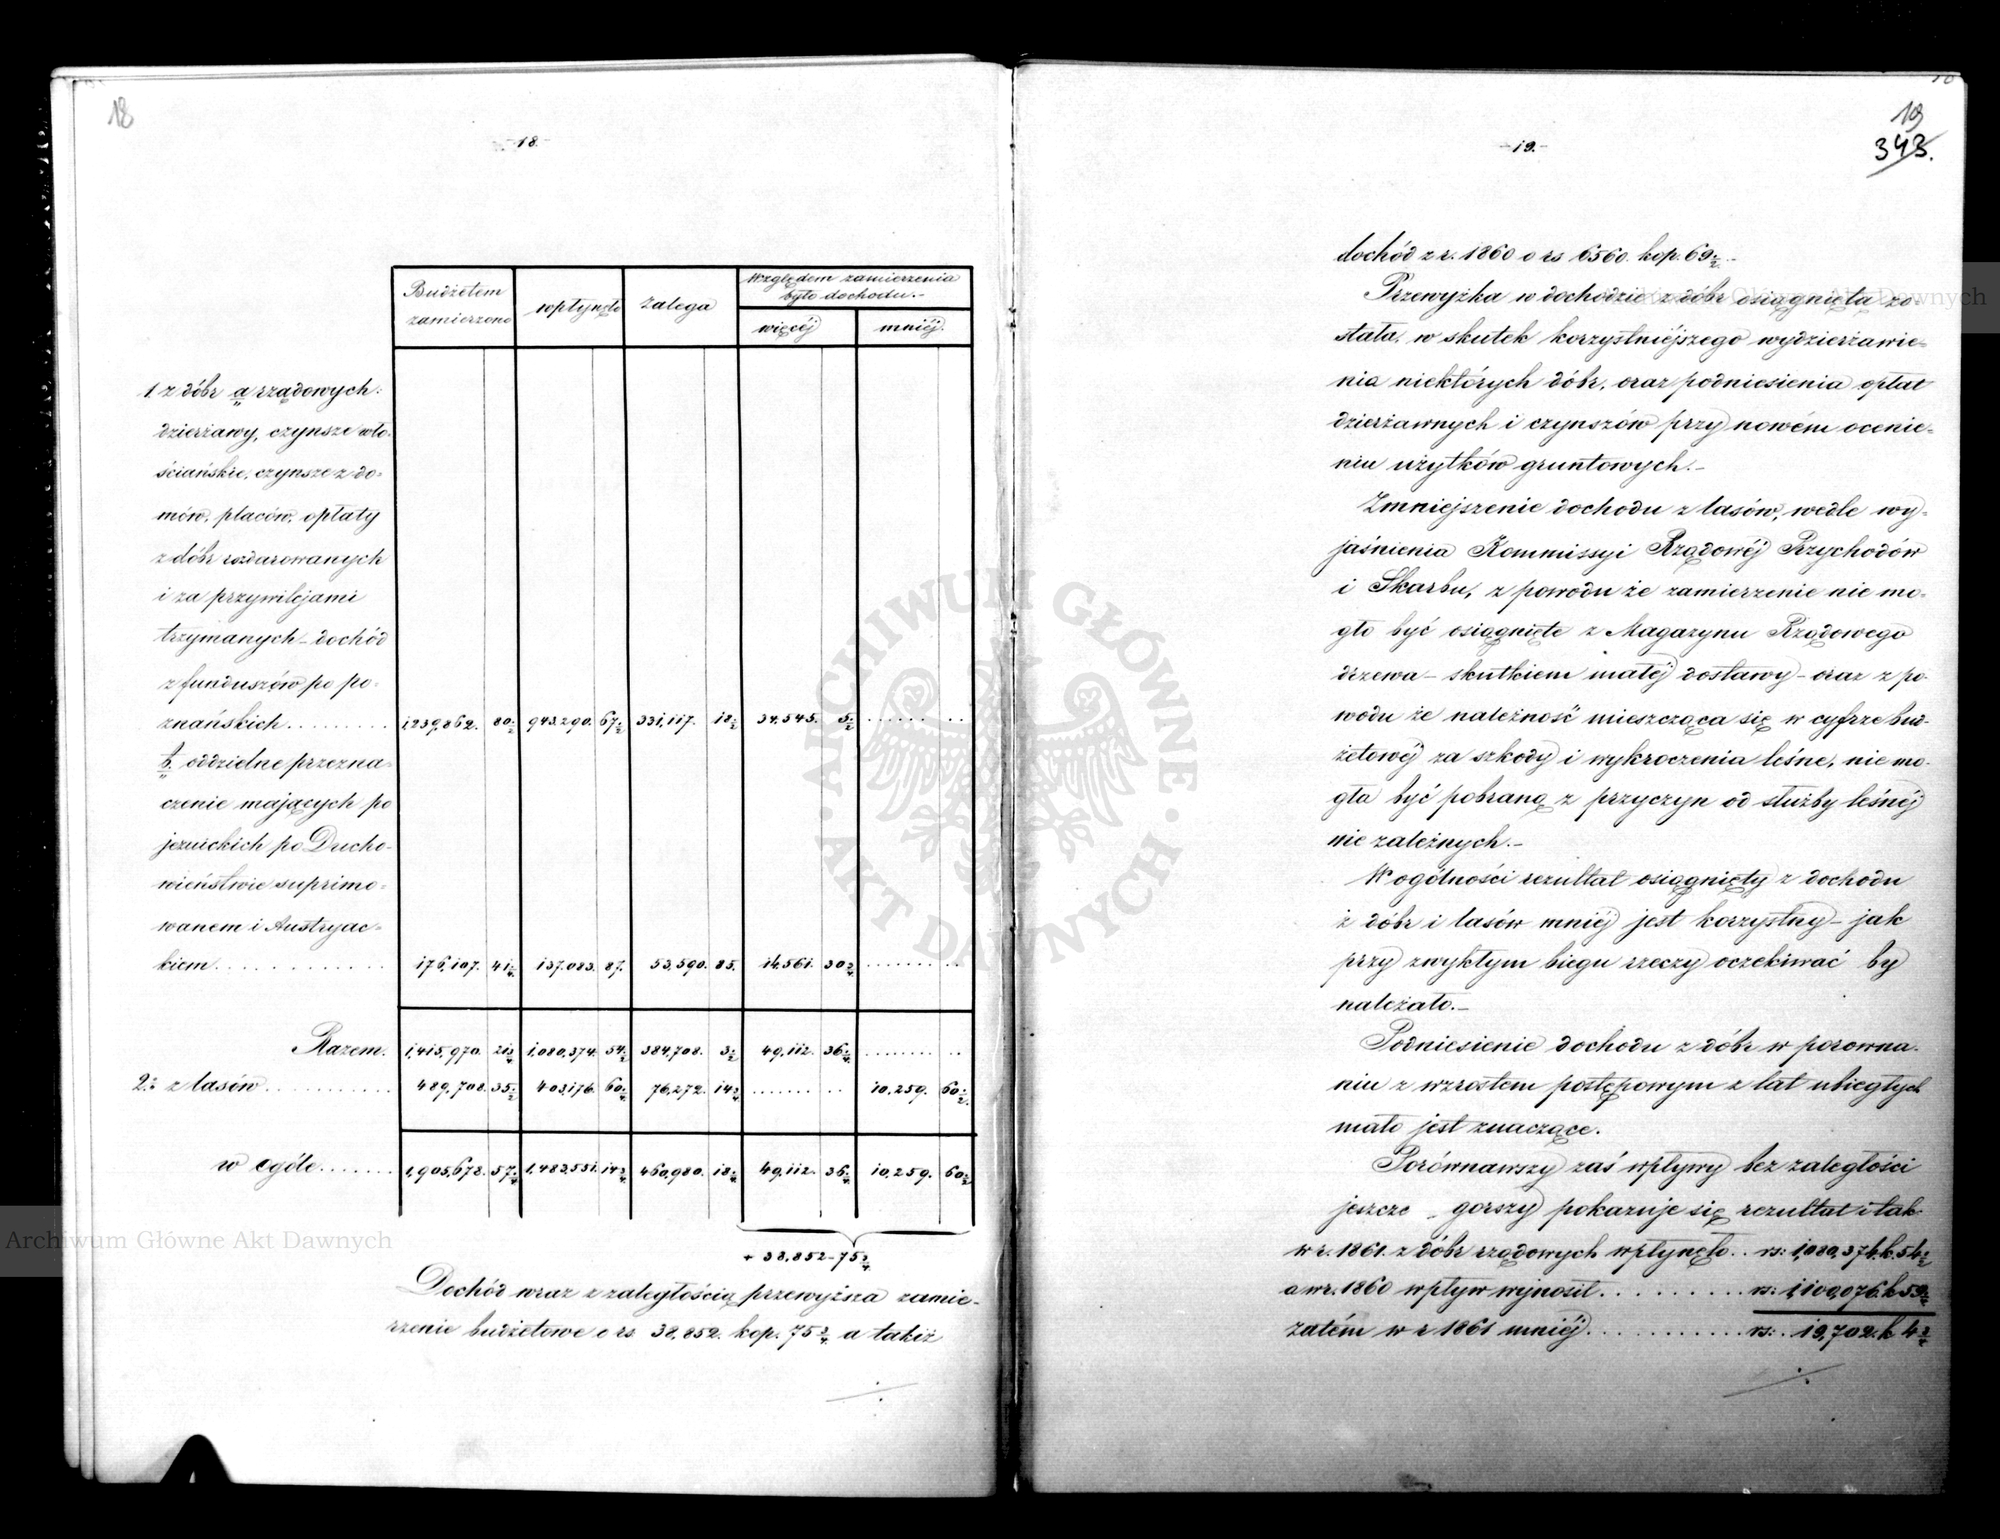 18
- 18. -
Budżetem zamierzono
wpłynęło
Zalega
Względem zamierzenia było dochodu.-
więcéj
mniéj.
1. z dóbr a rządowych:
dzierżawy, czynsze wło-
ściańskie, czynsze z do-
mów, placów, opłaty
z dóbr rozdarowanych
i za przywilejami
trzymanych - dochód
z funduszów po po-
znańskich . . . . . . . . 1,239,862. 80 943,290. 67 331,117. 18 34,545. 5 . . . . . . . .
b. oddzielne przezna-
czenie mających po
jezuickich po Ducho-
wieństwie suprimo-
wanem i Austryac-
kiem . . . . . . . . . . . . 176,107. 41 137,083. 87. 53,590. 85. 14,561. 30 . . . . . . . .
Razem. 1,415,970. 21 1,080,374. 54 384,708. 3 49,112. 36 . . . . . . . .
2.: z lasów . . . . . . . . . . 489,708. 35 403,176. 60 76,272. 14 . . . . . . . . 10,259. 60
w ogóle . . . . . . . 1,905,678. 57 1,483,551. 14 460,980. 18 49,112. 36 10,259. 60
+ 38,852-75 3/4
Dochód wraz z zaległością przewyższa zamie-
rzenie budżetowe o rs 38,852. kop. 75 3/4 a takiż
./.
19
343.
- 19. -
dochód z r. 1860 o rs 6560. kop. 69 1/2.-
Przewyżka w dochodzie z dóbr osiągnięta zo-
stała, w skutek korzystniéjszego wydzierżawie-
nia niektórych dóbr, oraz podniesienia opłat
dzierżawnych i czynszów przy nowém ocenie-
niu użytków gruntowych.-
Zmniejszenie dochodu z lasów, wedle wy-
jaśnienia Kommissyi Rządowéj Przychodów
i Skarbu, z powodu że zamierzenie nie mo-
gło być osiągnięte z Magazynu Rządowego
drzewa - skutkiem małéj dostawy - oraz z po-
wodu że należność mieszcząca się w cyfrze bud-
żetowéj za szkody i wykroczenia leśne, nie mo-
gła być pobraną z przyczyn od służby leśnéj
nie zależnych.-
W ogólności rezultat osiągnięty z dochodu
z dóbr i lasów mniéj jest korzystny - jak
przy zwykłym biegu rzeczy oczekiwać by
należało.-
Podniesienie dochodu z dóbr w porowna-
niu z wzrostem postępowym z lat ubiegłych
mało jest znaczące.
Porównawszy zaś wpływy bez zaległości
jeszcze gorszy pokazuje się rezultat i tak
w r. 1861. z dóbr rządowych wpłynęło . . rs: 1,080,374. k. 54 1/2
a w r. 1860 wpływ wynosił . . . . . . . . . rs: 1,100,076. k 59
zatém w r 1861 mniéj . . . . . . . . . . . rs: . 19,702. k 4
./.
Archiwum Główne Akt Dawnych
Archiwum Główne Akt Dawnych
ARCHIWUM GŁÓWNE · AKT DAWNYCH ·